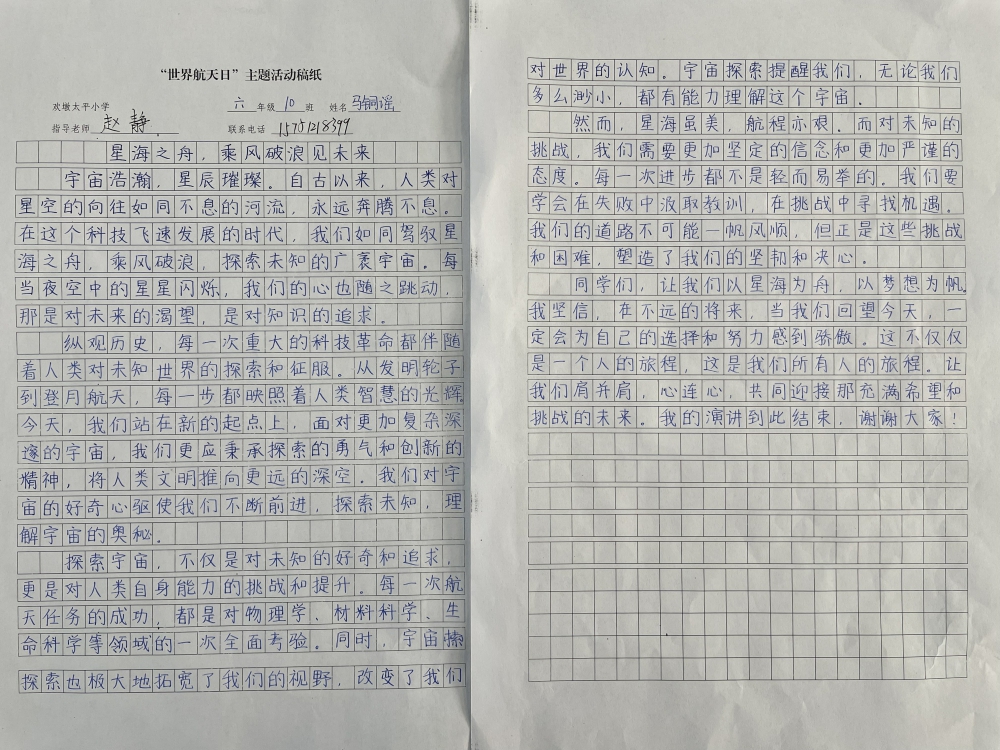 “世界航天日”主题活动稿纸
欢墩太平小学 六 年级 10 班 姓名 马铜谣
指导老师 赵静 联系电话 15751218399
星海之舟，乘风破浪见未来
宇宙浩瀚，星辰璀璨。自古以来，人类对
星空的向往如同不息的河流，永远奔腾不息。
在这个科技飞速发展的时代，我们如同驾驭星
海之舟，乘风破浪，探索未知的广袤宇宙。每
当夜空中的星星闪烁，我们的心也随之跳动，
那是对未来的渴望，是对知识的追求。
纵观历史，每一次重大的科技革命都伴随
着人类对未知世界的探索和征服。从发明轮子
到登月航天，每一步都映照着人类智慧的光辉
今天，我们站在新的起点上，面对更加复杂深
邃的宇宙，我们更应秉承探索的勇气和创新的
精神，将人类文明推向更远的深空。我们对宇
宙的好奇心驱使我们不断前进，探索未知，理
解宇宙的奥秘。
探索宇宙，不仅是对未知的好奇和追求，
更是对人类自身能力的挑战和提升。每一次航
天任务的成功，都是对物理学、材料科学、生
命科学等领域的一次全面考验。同时，宇宙
探索也极大地拓宽了我们的视野，改变了我们
对世界的认知。宇宙探索提醒我们，无论我们
多么渺小，都有能力理解这个宇宙。
然而，星海虽美，航程亦艰。而对未知的
挑战，我们需要更加坚定的信念和更加严谨的
态度。每一次进步都不是轻而易举的。我们要
学会在失败中汲取教训，在挑战中寻找机遇。
我们的道路不可能一帆风顺，但正是这些挑战
和困难，塑造了我们的坚韧和决心。
同学们，让我们以星海为舟，以梦想为帆
我坚信，在不远的将来，当我们回望今天，一
定会为自己的选择和努力感到骄傲。这不仅仅
是一个人的旅程，这是我们所有人的旅程。让
我们肩并肩，心连心，共同迎接那充满希望和
挑战的未来。我的演讲到此结束，谢谢大家！